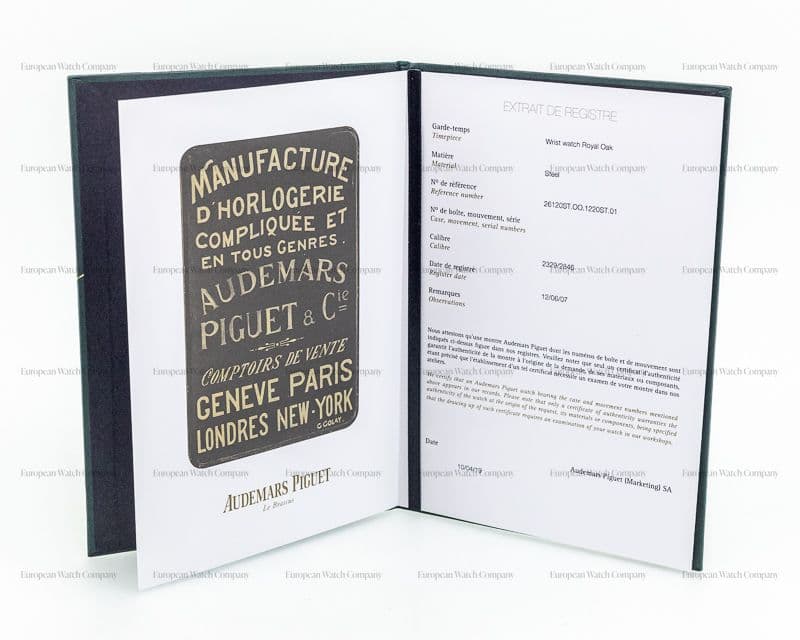 MANUFACTURE
D'HORLOGERIE
COMPLIQUÉE ET
EN TOUS GENRES.
AUDEMARS
PIGUET & Cie
COMPTOIRS DE VENTE
GENEVE PARIS
LONDRES NEW-YORK
G GOLAY.
AUDEMARS PIGUET
Le Brassus
EXTRAIT DE REGISTRE
Garde-temps
Timepiece
Wrist watch Royal Oak
Matière
Material
Steel
N° de référence
Reference number
26120ST.OO.1220ST.01
N° de boîte, mouvement, série
Case, movement, serial numbers
Calibre
Calibre
2329/2846
Date de registre
Register date
12/06/07
Remarques
Observations
Nous attestons qu'une montre Audemars Piguet dont les numéros de boîte et de mouvement sont
indiqués ci-dessus figure dans nos registres. Veuillez noter que seul un certificat d'authenticité
garantit l'authenticité de la montre à l'origine de la demande, de ses matériaux ou composants,
étant précisé que l'établissement d'un tel certificat nécessite un examen de votre montre dans nos
ateliers.
We certify that an Audemars Piguet watch bearing the case and movement numbers mentioned
above appears in our records. Please note that only a certificate of authenticity warranties the
authenticity of the watch at the origin of the request, its materials or components, being specified
that the drawing up of such certificate requires an examination of your watch in our workshops.
Date
10/04/19
Audemars Piguet (Marketing) SA
European Watch Company